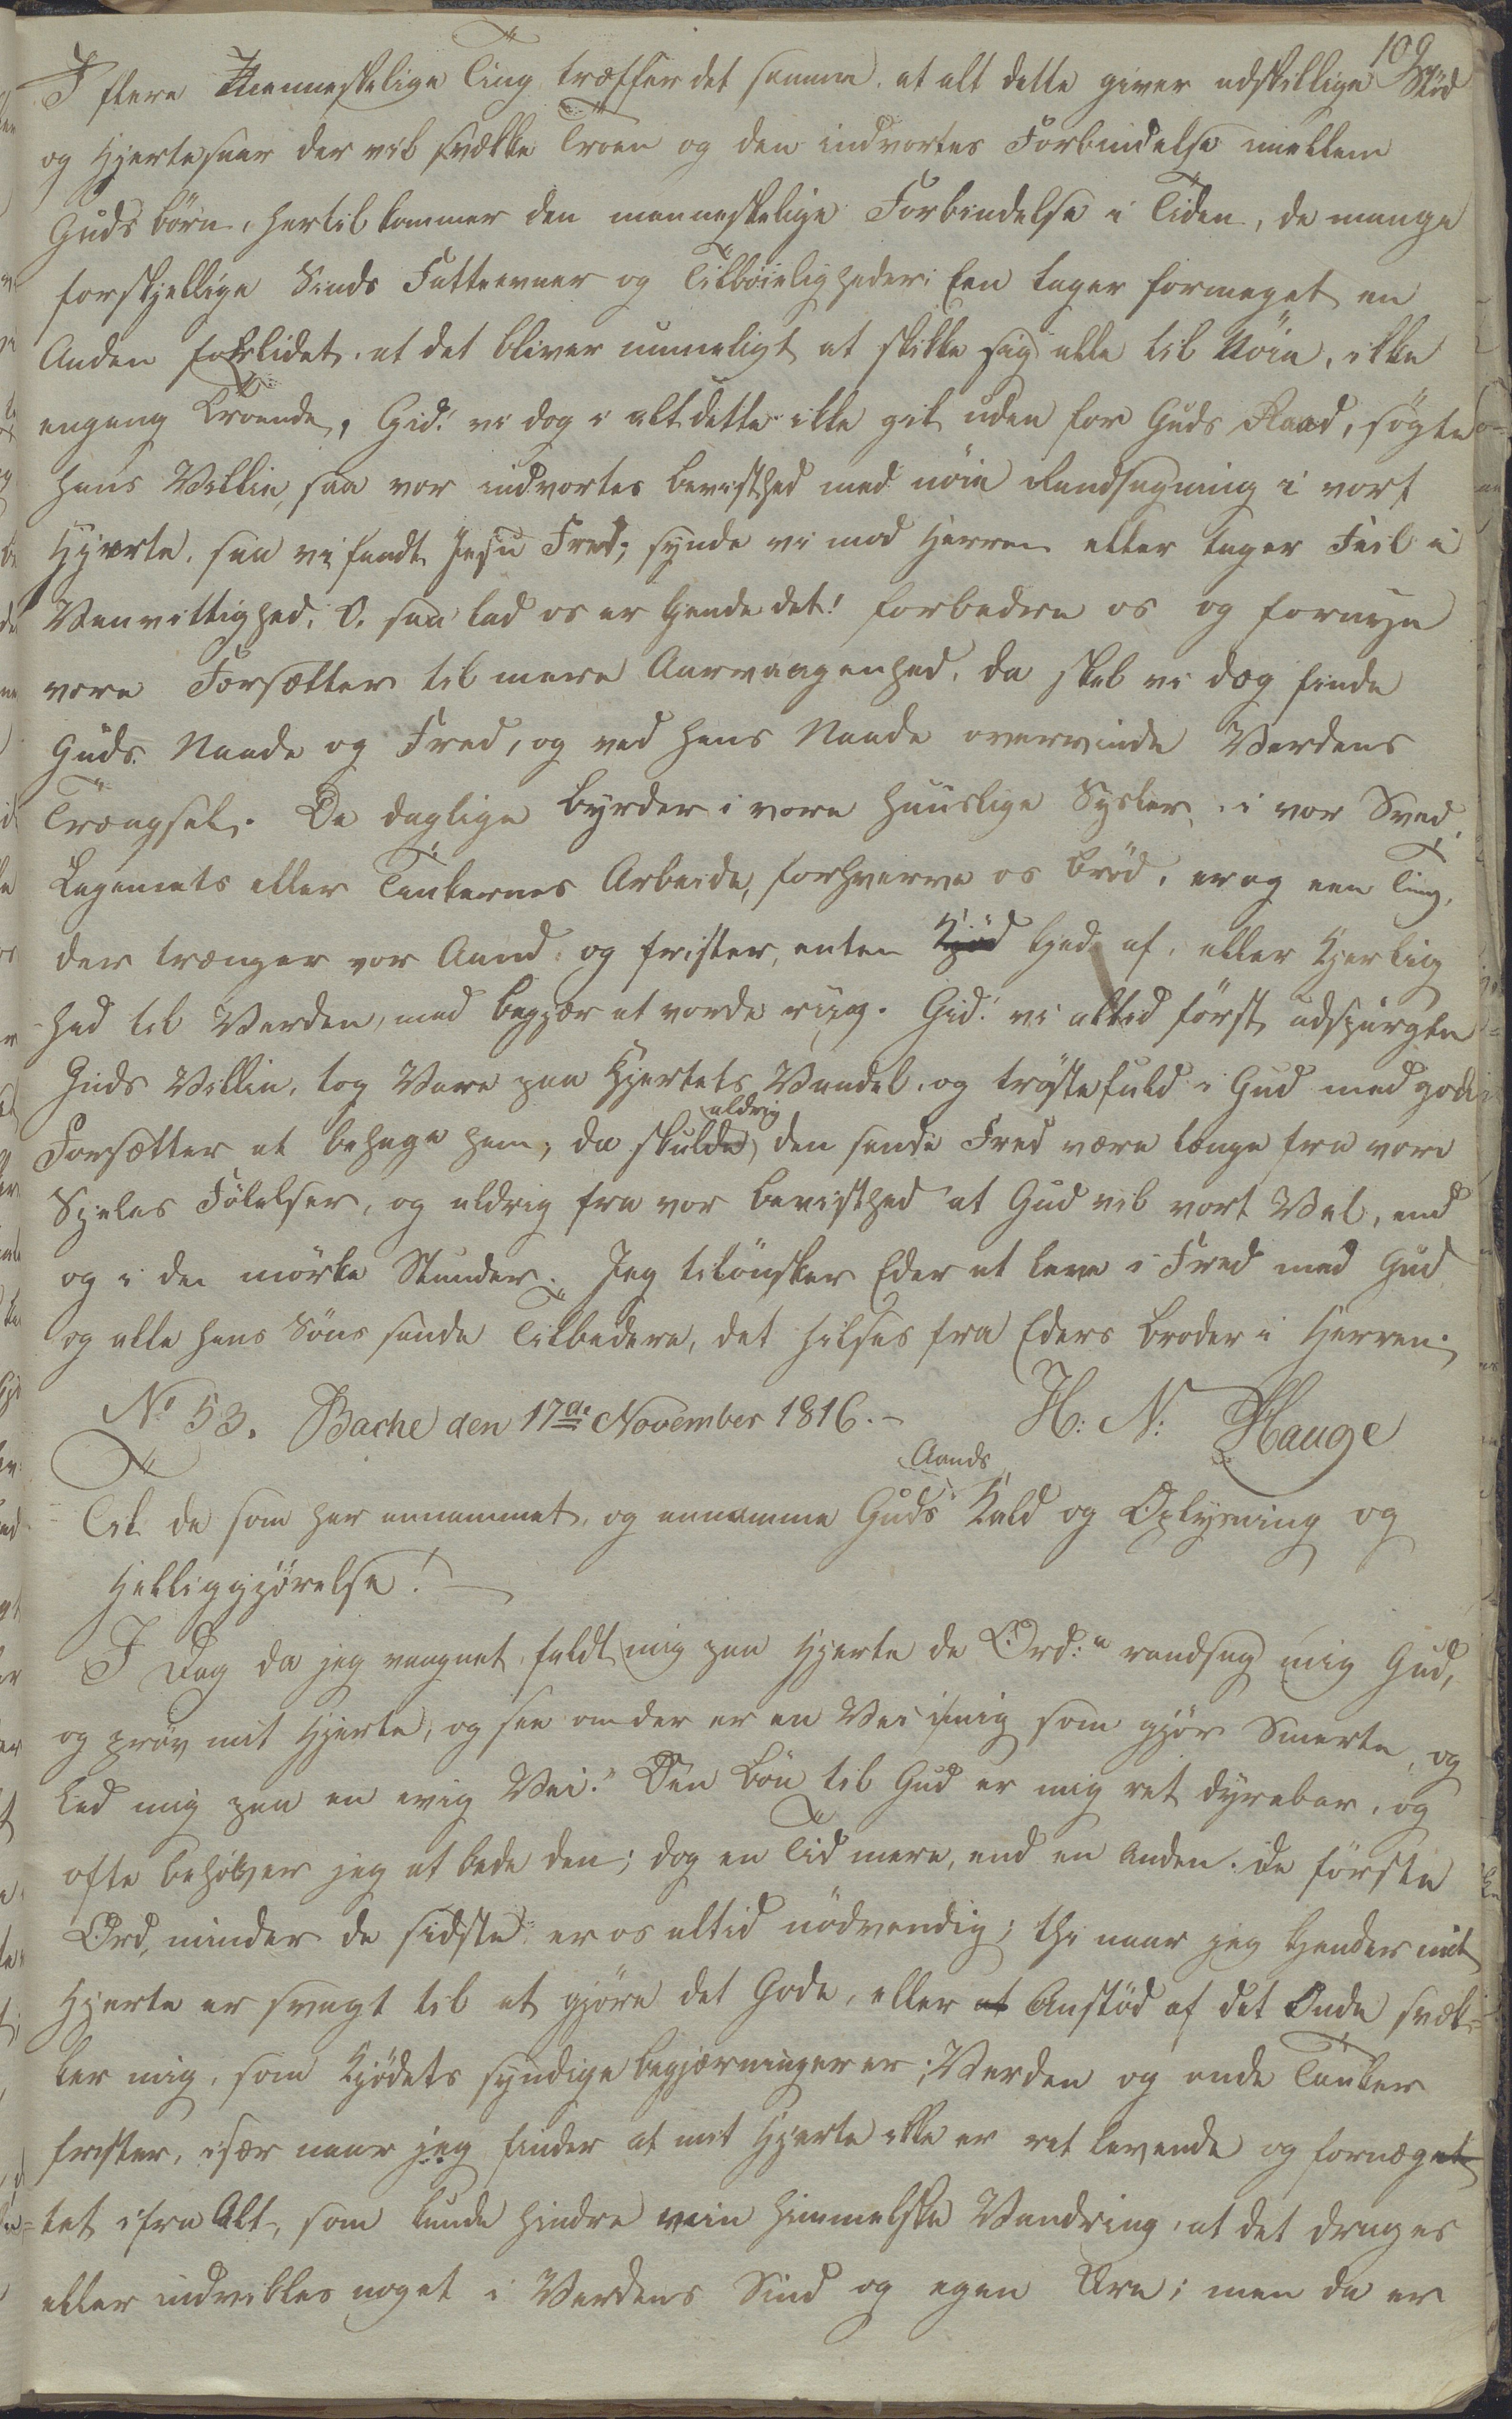 109
I flere Menneskelige Ting træffer det samme, at alt dette giver adskillige Stöd
og Hjertesaar der vil svække Troen og den indvortes Forbindelse mellem
Guds börn, hertil kommer den menneskelige Forbindelse i Tiden, de mange
forskjellige Sinds Fatteevner og Tilböieligheder; Een tager formeget en
Anden forlidet, at det bliver umueligt at skikke sig alle til Nöie, ikke
engang Troende, Gid! vi dog i alt dette ikke gik uden for Guds Raad, sögte
hans Villie, saa vor indvortes bevisthed med nöie Randsagning i vort
Hjerte, saa vi fandt Jesu Fred; synde vi mod Herren eller tager Feil i
Vanvittighed, O, saa lad os erkjende det! forbedre os og fornye
vore Forsætter til mere Aarvaagenhed, da skal vi dog finde
Guds Naade og Fred, og ved hans Naade overvinde Verdens
Trængsel. De daglige byrder i vore huuslige Sysler, i vor Sved,
Legemets eller Tankernes Arbeide, forhverve os bröd, er og een Ting,
der trænger vor Aand, og frister, enten Kjöd kjed af, eller Kjerlig
-hed til Verden, med begjær at vorde riig. Gid! vi altid först udspurgte
Guds Villie, tog Vare paa Hjertets Vandel, og tröstefuld i Gud med gode
Forsætter at behage ham, da skulde aldrig den sande Fred være længe fra vore
Sjeles Fölelser, og aldrig fra vor bevisthed at Gud vil vort Vel, end
og i de mörke Stunder. Jeg tilönsker Eder at leve i Fred med Gud
og alle hans Söns sande Tilbedere, det hilses fra Eders broder i Herren.
No 53. Bache den 17de November 1816.- H: N: Hauge
Til de som har annammet, og annamme Guds Aands Kald og Oplysning og
Helliggjörelse!
I Dag da jeg vaagnet, faldt mig paa Hjerte de Ord: "randsag mig Gud,
og pröv mit Hjerte, og see om der er en Vei i mig som gjör Smerte, og
led mig paa en evig Vei." Den bön til Gud er mig ret dyrebar, og
ofte behöver jeg at bede den; dog en Tid mere, end en anden. De förste
Ord, minder de sidste er os altid nödvendig; thi naar jeg kjender mit
Hjerte er svagt til at gjöre det Gode, eller at Anstöd af det Onde svæk-
ker mig, som Kjödets syndige begjæringer er; Verden og onde Tanker
frister, især naar jeg finder at mit Hjerte ikke er ret levende og fornæget
-tet ifra Alt, som kunde hindre min himmelske Vandring, at det drages
eller indvikles noget i Verdens Sind og egen Ære; men da er